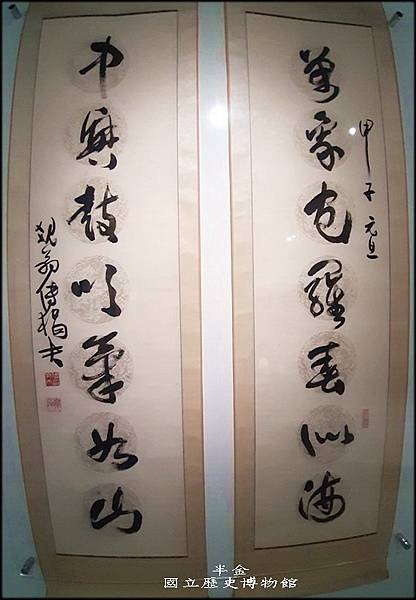 萬象包羅春似海
甲子元旦
中興鼓吹筆如山
覺翁傅狷夫
半金
國立歷史博物館